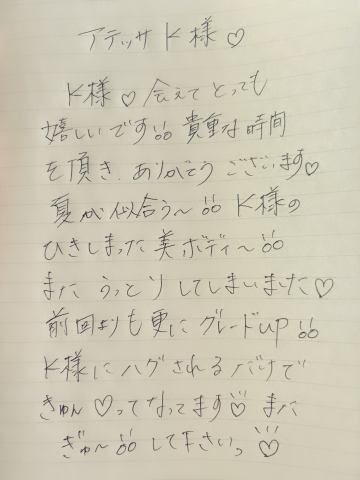 アテッサ K様♡
K様♡会えてとっても
嬉しいです!!貴重な時間
を頂き、ありがとうございます♡
夏が似合う〜!!K様の
ひきしまった美ボディ〜!!
またうっとりしてしまいました♡
前回よりも更にグレードup!!
K様にハグされるだけで
きゅん♡ってなってます♡また
ぎゅ〜!!して下さいっ♡